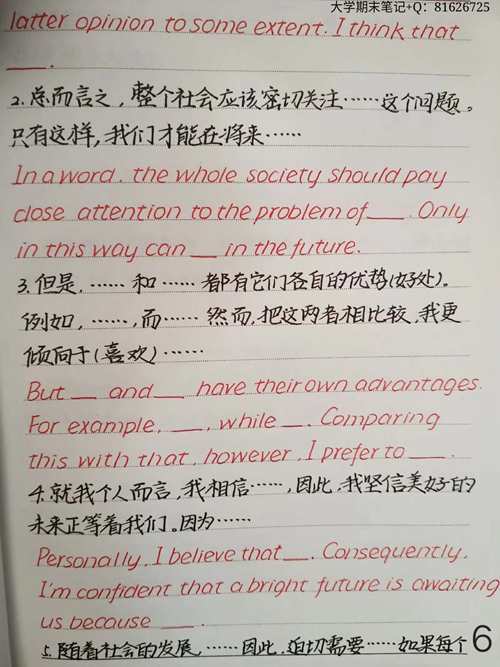 大学期末笔记+Q: 81626725
latter opinion to some extent. I think that
___.
2.总而言之,整个社会应该密切关注……这个问题。
只有这样,我们才能在将来……
In a word, the whole society should pay
close attention to the problem of___. Only
in this way can ___ in the future.
3.但是,……和……都有它们各自的优势(好处)。
例如,……,而……然而,把这两者相比较,我更
倾向于(喜欢)……
But ___ and ___ have their own advantages.
For example, ___, while ___. Comparing
this with that, however, I prefer to ___.
4.就我个人而言,我相信……,因此,我坚信美好的
未来正等着我们。因为……
Personally, I believe that ___. Consequently,
I'm confident that a bright future is awaiting
us because ___.
5.随着社会的发展,……因此,迫切需要……如果每个
6